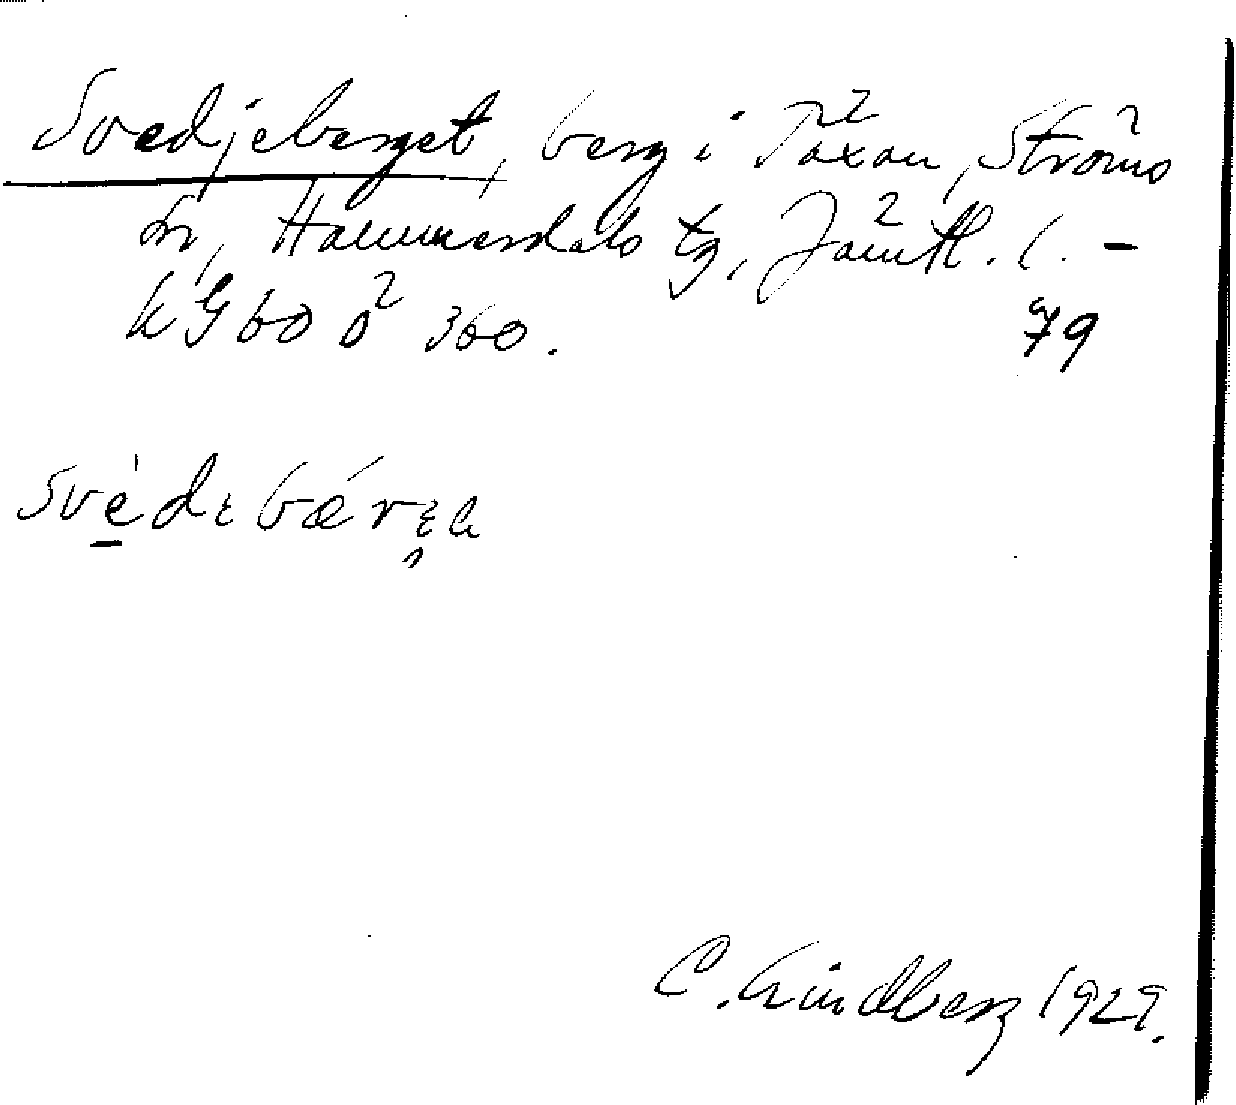 Svedjeberget, berg i Täxan, Ströms
sn, Hammerdals tg, Jämtl. l. –
k G 60 ö 360. 79
svèdɛbǽrɛa
C. Lindberg 1929.